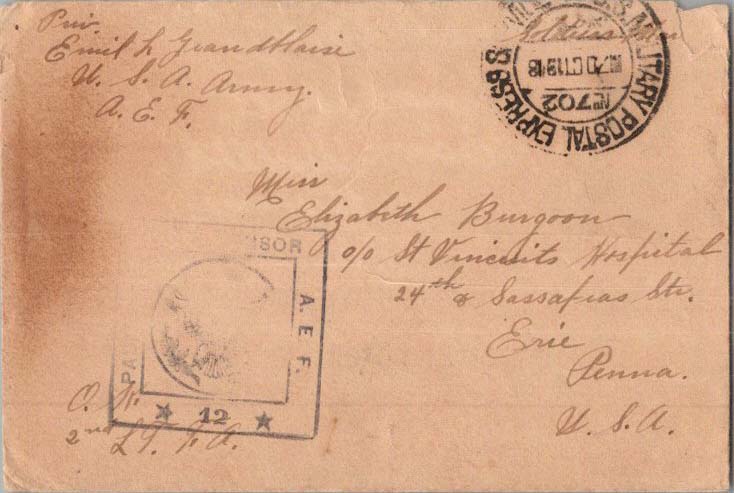 Priv.
Emil L Grandblaise
U. S. A. Army.
A. E. F.
Soldiers Mail
U.S. MILITARY POSTAL EXPRESS SERVICE
7 OCT 1918
No 702
Miss
Elizabeth Burgoon
c/o St Vincents Hospital
24th & Sassafras Str.
Erie
Penna.
U. S. A.
A. E. F.
★ 12 ★
2nd LT. F. A.